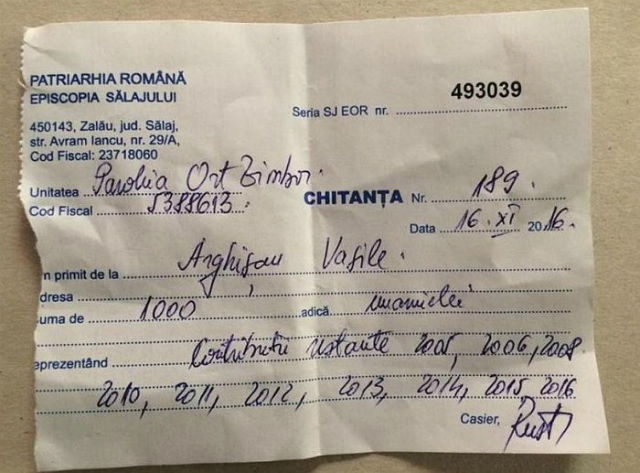 PATRIARHIA ROMÂNĂ
EPISCOPIA SĂLAJULUI
450143, Zalău, jud. Sălaj,
str. Avram Iancu, nr. 29/A,
Cod Fiscal: 23718060
Seria SJ EOR nr. 493039
Unitatea Parohia Ort Zimbor.
Cod Fiscal 5388613.
CHITANȚA Nr. 189.
Data 16. XI 2016.
n primit de la Arghișan Vasile.
dresa
uma de 1000 adică unamielei
eprezentând Contribuții restante 2005, 2006, 2008
2010, 2011, 2012, 2013, 2014, 2015, 2016
Casier,